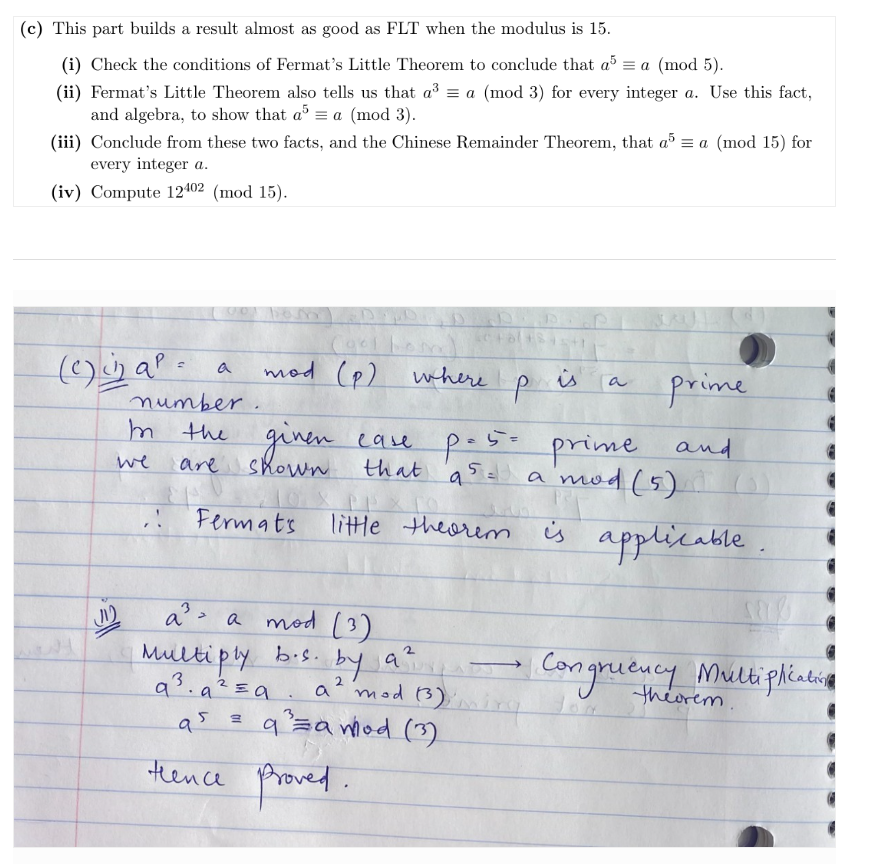 (c) This part builds a result almost as good as FLT when the modulus is 15.
(i) Check the conditions of Fermat's Little Theorem to conclude that a⁵ ≡ a (mod 5).
(ii) Fermat's Little Theorem also tells us that a³ ≡ a (mod 3) for every integer a. Use this fact,
and algebra, to show that a⁵ ≡ a (mod 3).
(iii) Conclude from these two facts, and the Chinese Remainder Theorem, that a⁵ ≡ a (mod 15) for
every integer a.
(iv) Compute 12⁴⁰² (mod 15).
(c) i) aᴾ = a mod (p) where p is a prime
number.
In the given case p = 5 = prime and
we are shown that a⁵ = a mod (5)
∴ Fermats little theorem is applicable.
ii) a³ = a mod (3)
Multiply b.s. by a² → Congruency Multiplication
theorem.
a³.a² ≡ a . a² mod (3)
a⁵ ≡ a³ ≡ a mod (3)
Hence proved.